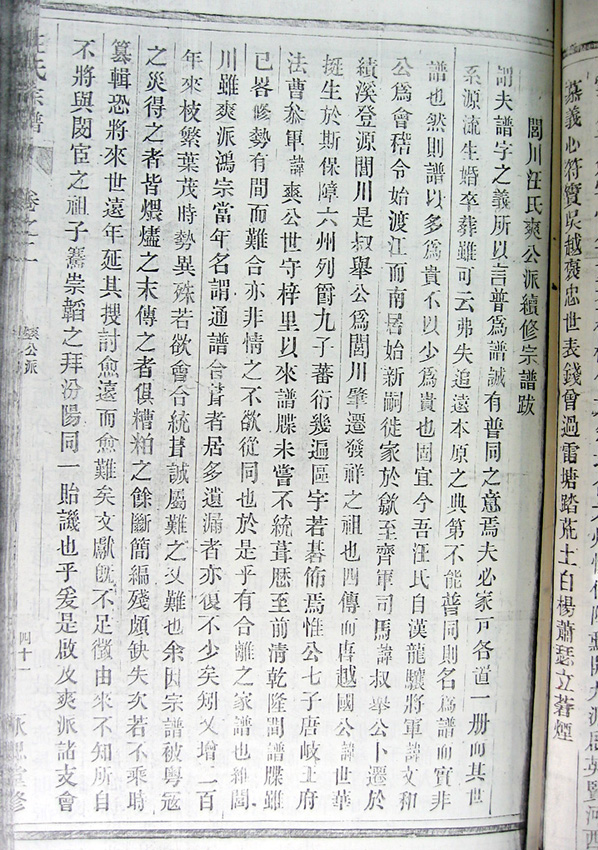 嘉義心符寶吳越褒忠世表錢曾過雷塘踏荒土白楊蕭瑟立蒼煙
閶川汪氏爽公派續修宗譜跋
謂夫譜字之義所以言普爲譜誠有普同之意焉夫必家戸各道一册而其世
系源流生婚卒葬雖可云弗失追遠本原之典第不能普同則名爲譜而實非
譜也然則譜以多爲貴不以少爲貴也固宜今吾汪氏自漢龍驤將軍諱文和
公爲會稽令始渡江而南居始新嗣徙家於歙至齊軍司馬諱叔舉公卜遷於
績溪登源閶川是叔舉公爲閶川肇遷發祥之祖也四傳而唐越國公諱世華
挺生於斯保障六州列爵九子蕃衍幾遍區宇若碁佈焉惟公七子唐岐王府
法曹叅軍諱爽公世守梓里以來譜牒未嘗不統葺歷至前清乾隆間譜牒雖
已畧修勢有間而難合亦非情之不欲從同也於是乎有合離之家譜也維閶
川雖爽派鴻宗當年名謂通譜合葺者居多遺漏者亦復不少矣矧又增一百
年來枝繁葉茂時勢異殊若欲會合統葺誠屬難之又難也余因宗譜被粤寇
之災得之者皆煨燼之末傳之者俱糟粕之餘斷簡編殘頗缺失次若不乘時
纂輯恐將來世遠年延其搜討愈遠而愈難矣文獻旣不足徵由來不知所自
不將與閔宦之祖子騫崇韜之拜汾陽同一貽譏也乎爰是啟及爽派諸支會
汪氏宗譜
卷之二
爽公派
四十一